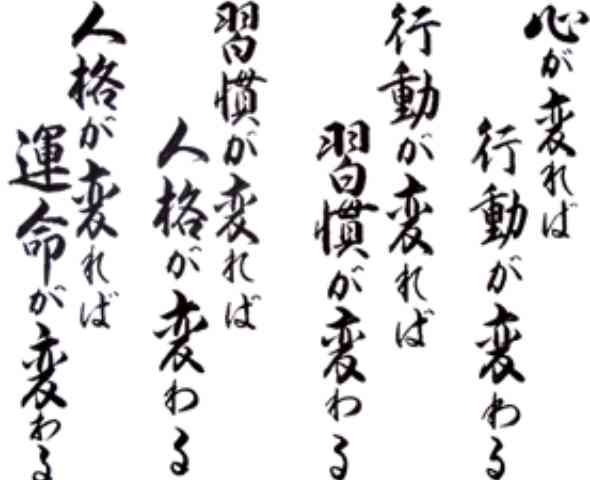 心が変れば
行動が変わる
行動が変れば
習慣が変わる
習慣が変れば
人格が変わる
人格が変れば
運命が変わる